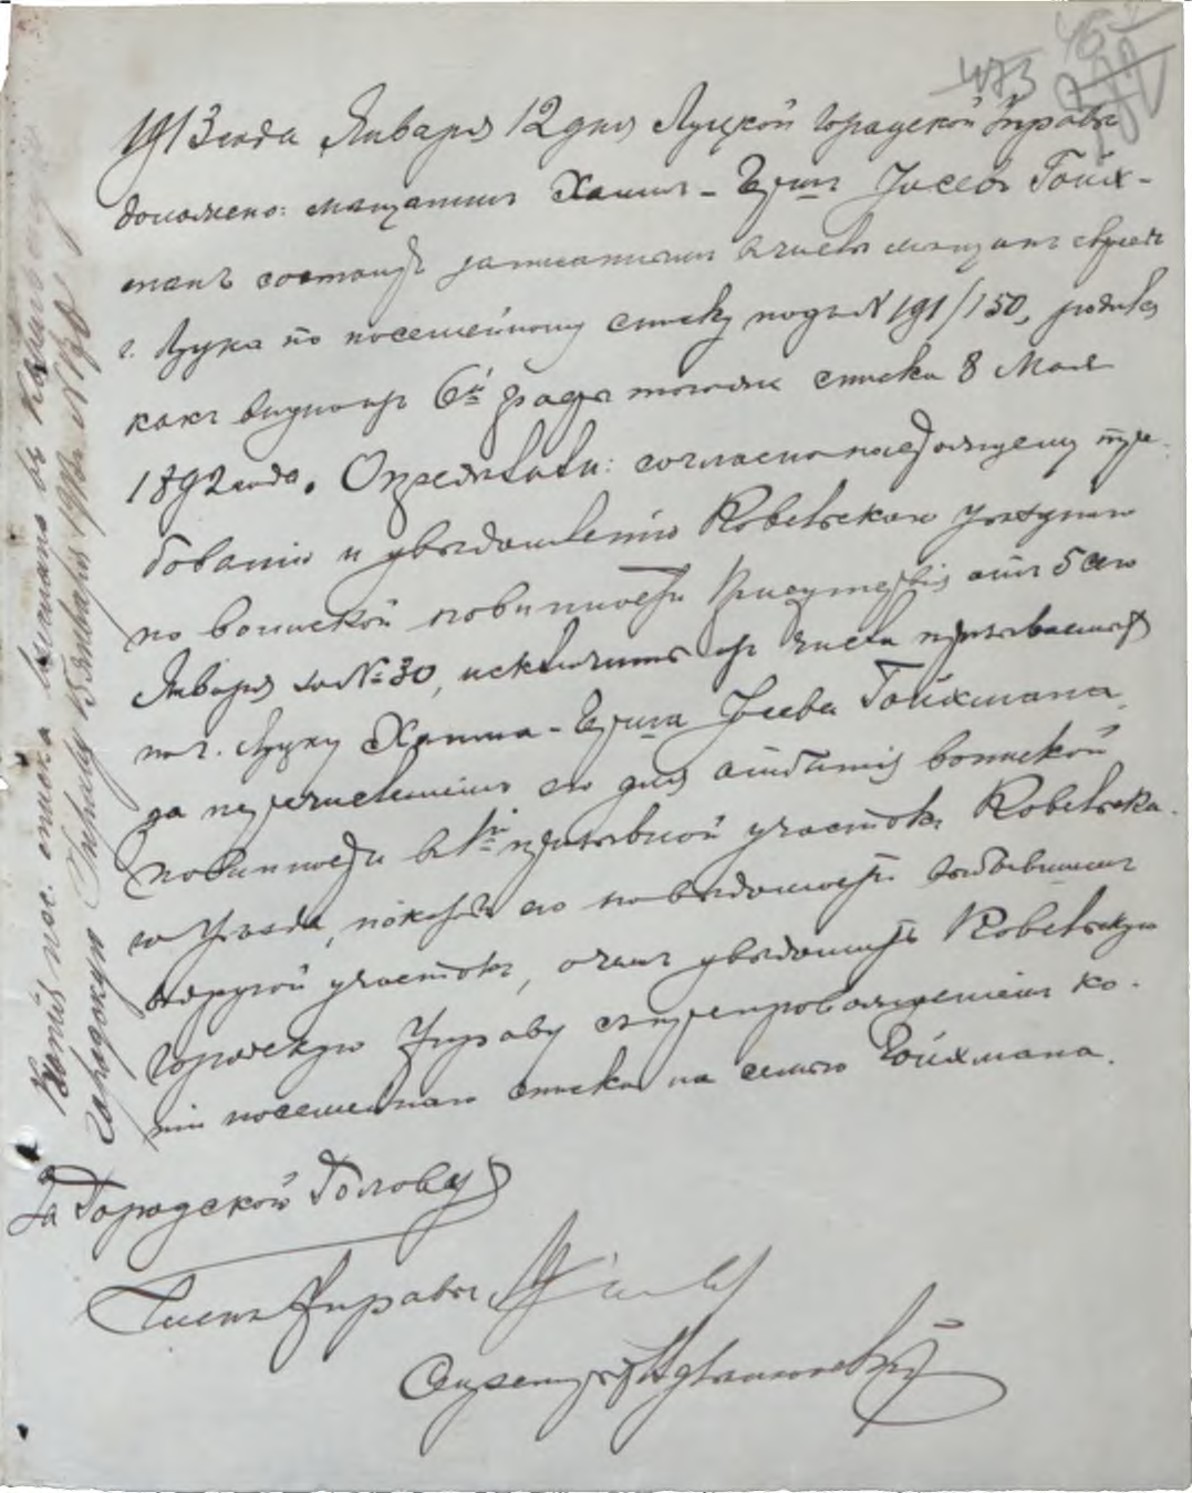 473
1913 года Января 12 дня Луцкой Городской Управе
доложено: мещанинъ Хаимъ-Герш Іосевъ Гойх-
манъ состоитъ записаннымъ въ число мещанъ евреевъ
г. Луцка по посемейному списку подъ N 191/150, родился
какъ видно изъ 6й графы того же списка 8 Мая
1892 года. Определили: согласно настоящему тре-
бованію и уведомленію Ковельскаго уезднаго
по воинской повинности Присутствія отъ 5 сего
Января за № 30, исключить изъ числа призываемыхъ
по г. Луцку Хаима-Герша Іосева Гойхмана,
за перечисленіемъ его для отбытія воинской
повинности въ 1й призывной участокъ Ковельска-
го уезда, показать его по ведомости выбывшимъ
въ другой участокъ, о чемъ уведомить Ковельскую
городскую Управу съ препровожденіемъ ко-
піи посемейнаго списка на семью Гойхмана.
За Городской Голову
Членъ Управы
Секретарь
Копія пос. списка выслана въ Ковельскую
Городскую Управу 15 Января 1913 г. N